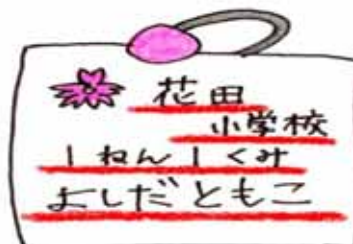 花田
小学校
1ねん1くみ
よしだともこ